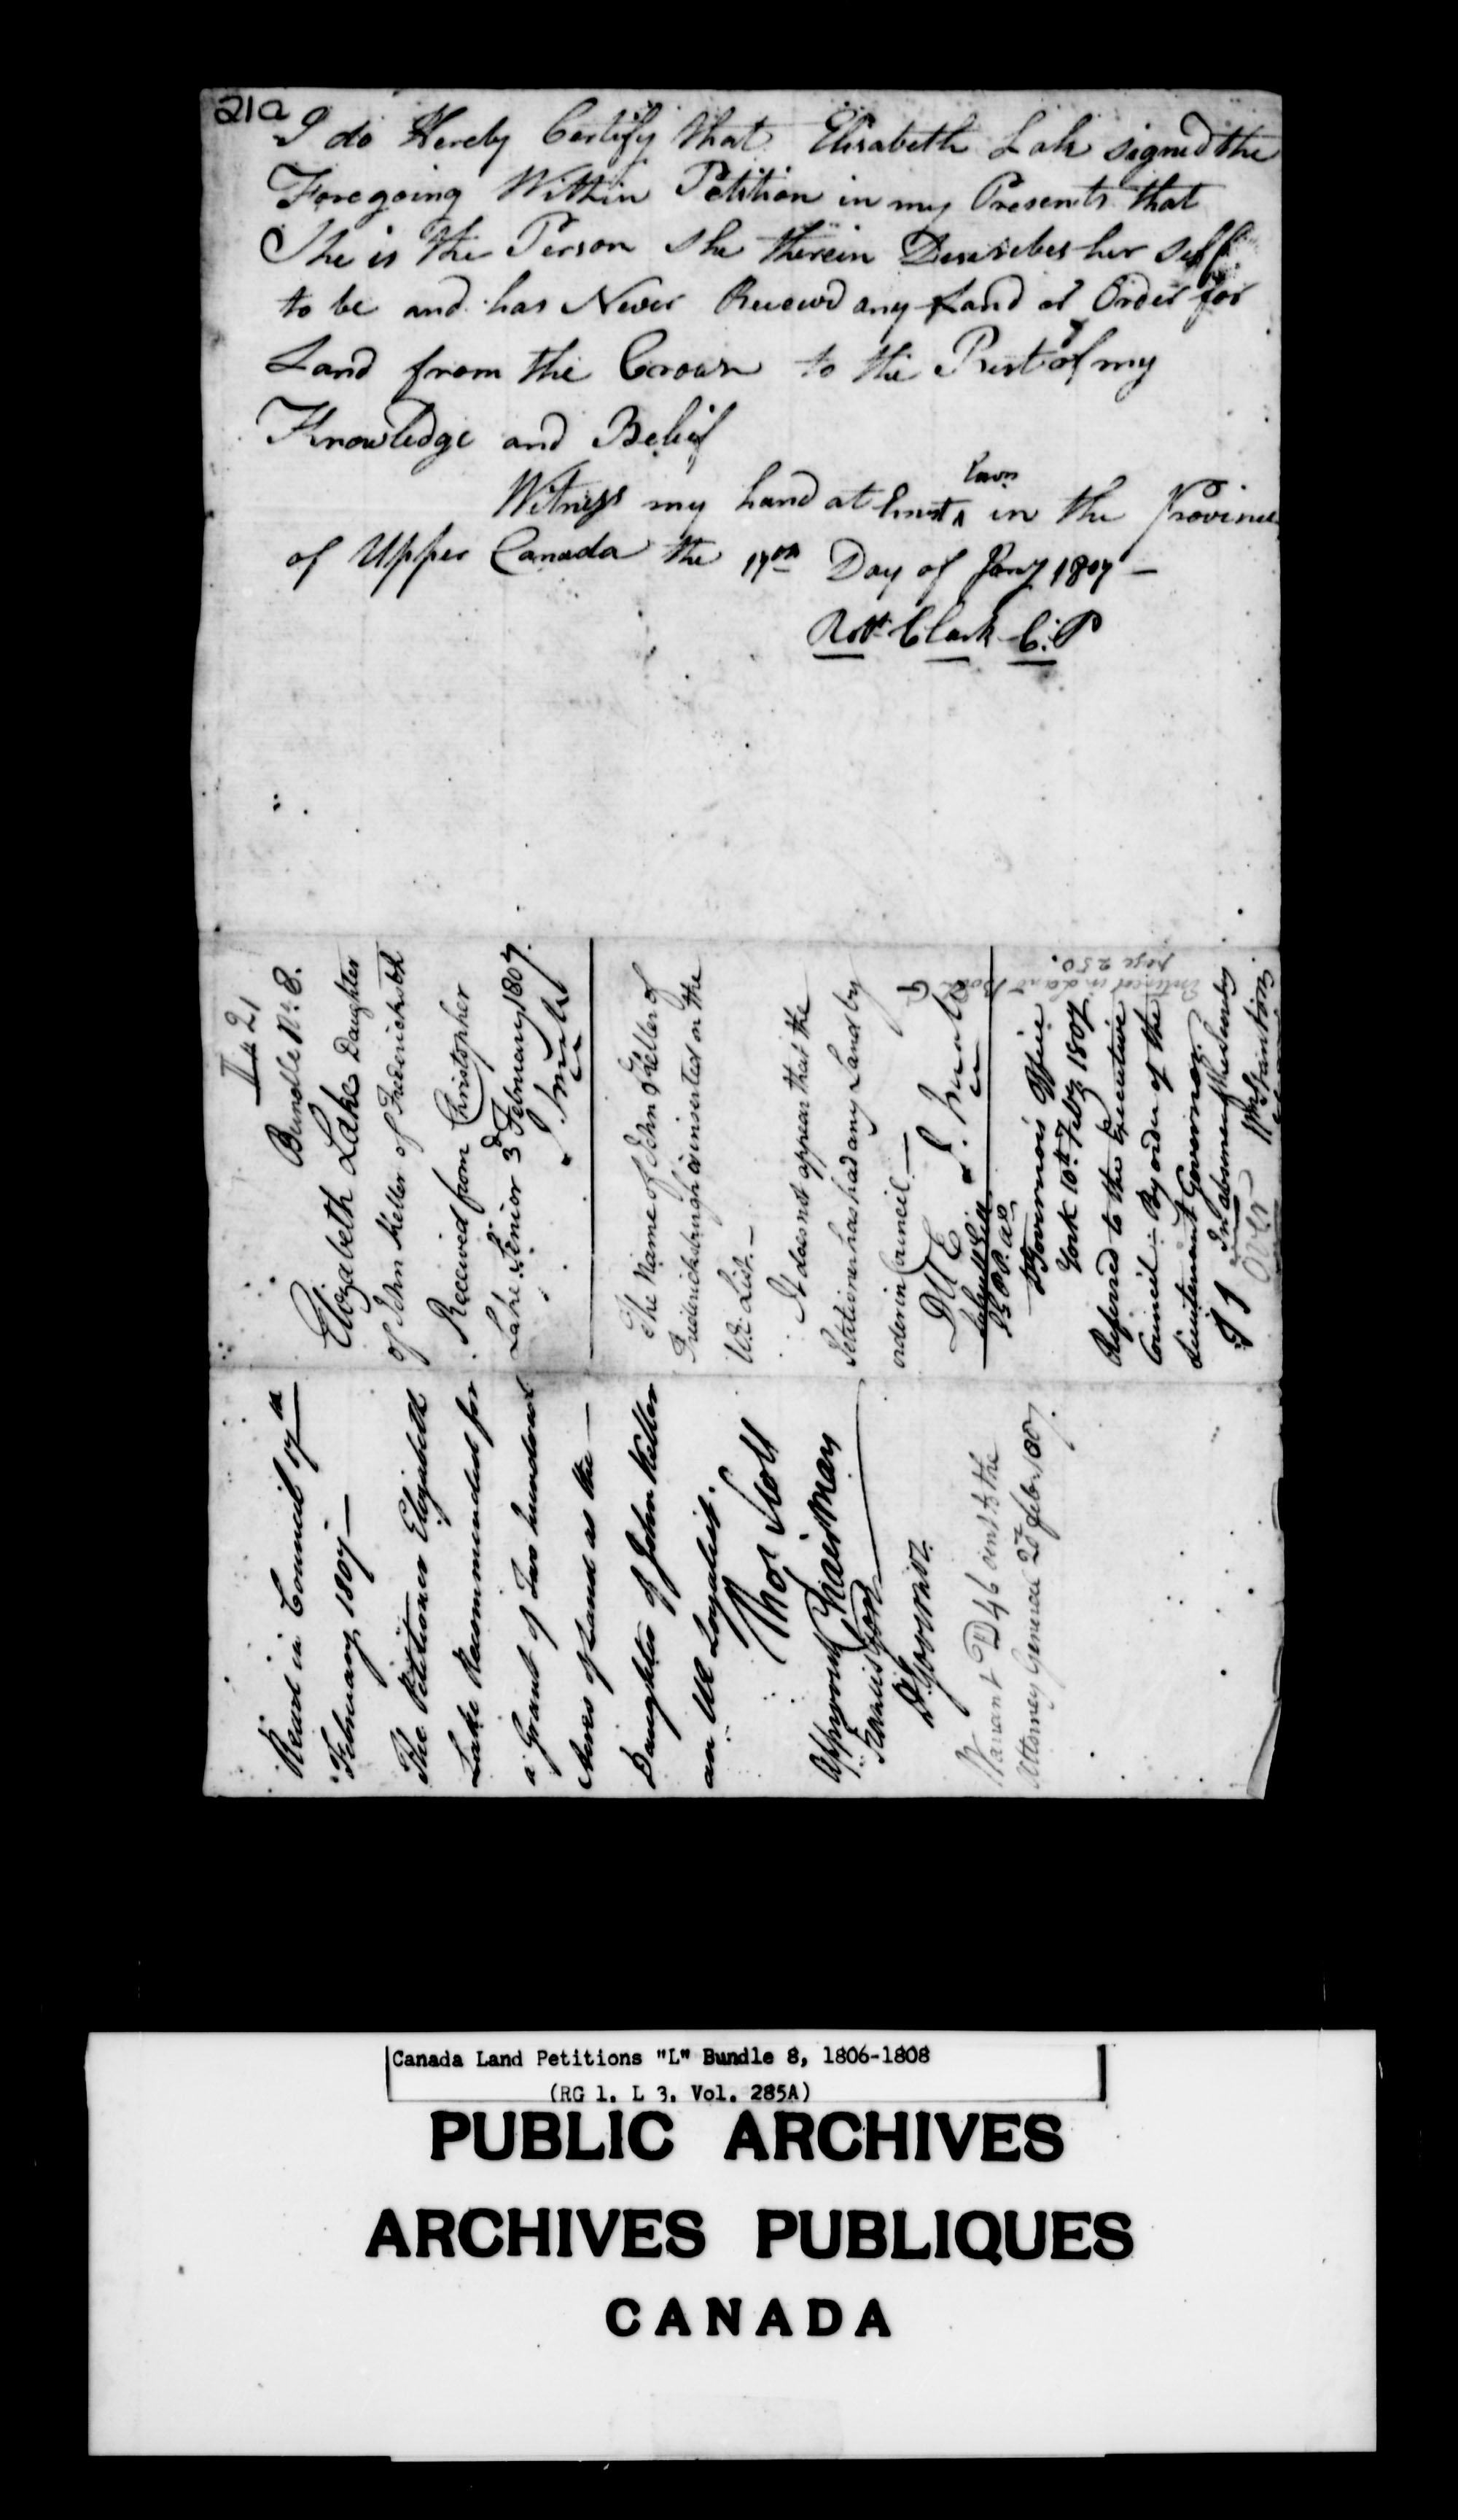 21a
I do Hereby Certify that Elisabeth Lake signed the
Foregoing Within Petition in my Presents that
She is the Person she therein Describes her self
to be and has Never Receivd any Land or Order for
Land from the Crown to the Best of my
Knowledge and Belief
Witness my hand at Ernest Town in the Province
of Upper Canada the 17th Day of Jany 1807 —
Robt Clark C:P
L 21
Bundle No. 8.
Elizabeth Lake Daughter
of John Keller of Fredericksbh
Received from Christopher
Lake Senior 3d February 1807.
J. Small
The Name of John Keller of
Fredericksburgh is inserted on the
UE List. —
It does not appear that the
Petitioner has had any Land by
order in Council —
J. Small
Governors Office
York 10th Feby 1807
Referred to the Executive
Council — By order of the
Lieutenant Governor.
In absence of the Secretary
Wm Stanton
Over
Entered in Land Book G
page 250.
Read in Council 17th
February 1807 —
The Petitioner Elizabeth
Lake Recommended for
a Grant of Two hundred
Acres of Land as the —
Daughter of John Keller
an UE Loyalist.
Thos Scott
Chairman
Approved
Francis Gore
Lt Governor.
Warrant D46 sent to the
Attorney General 28 feby 1807.
Canada Land Petitions "L" Bundle 8, 1806-1808
(RG 1, L 3, Vol. 285A)
PUBLIC ARCHIVES
ARCHIVES PUBLIQUES
CANADA